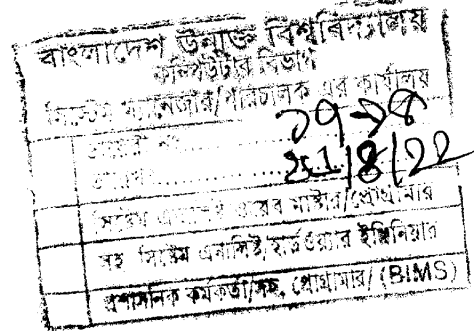 বাংলাদেশ উন্মুক্ত বিশ্ববিদ্যালয়
কম্পিউটার বিভাগ
সিস্টেম ম্যানেজার/পরিচালক এর কার্যালয়
ডায়েরী নং
তারিখ
সিস্টেম এনালিষ্ট/ওয়েব মাষ্টার/প্রোগ্রামার
সহ সিষ্টেম এনালিষ্ট/হার্ডওয়্যার ইঞ্জিনিয়ার
প্রশাসনিক কর্মকর্তা/সহ, প্রোগ্রামার/ (BIMS)